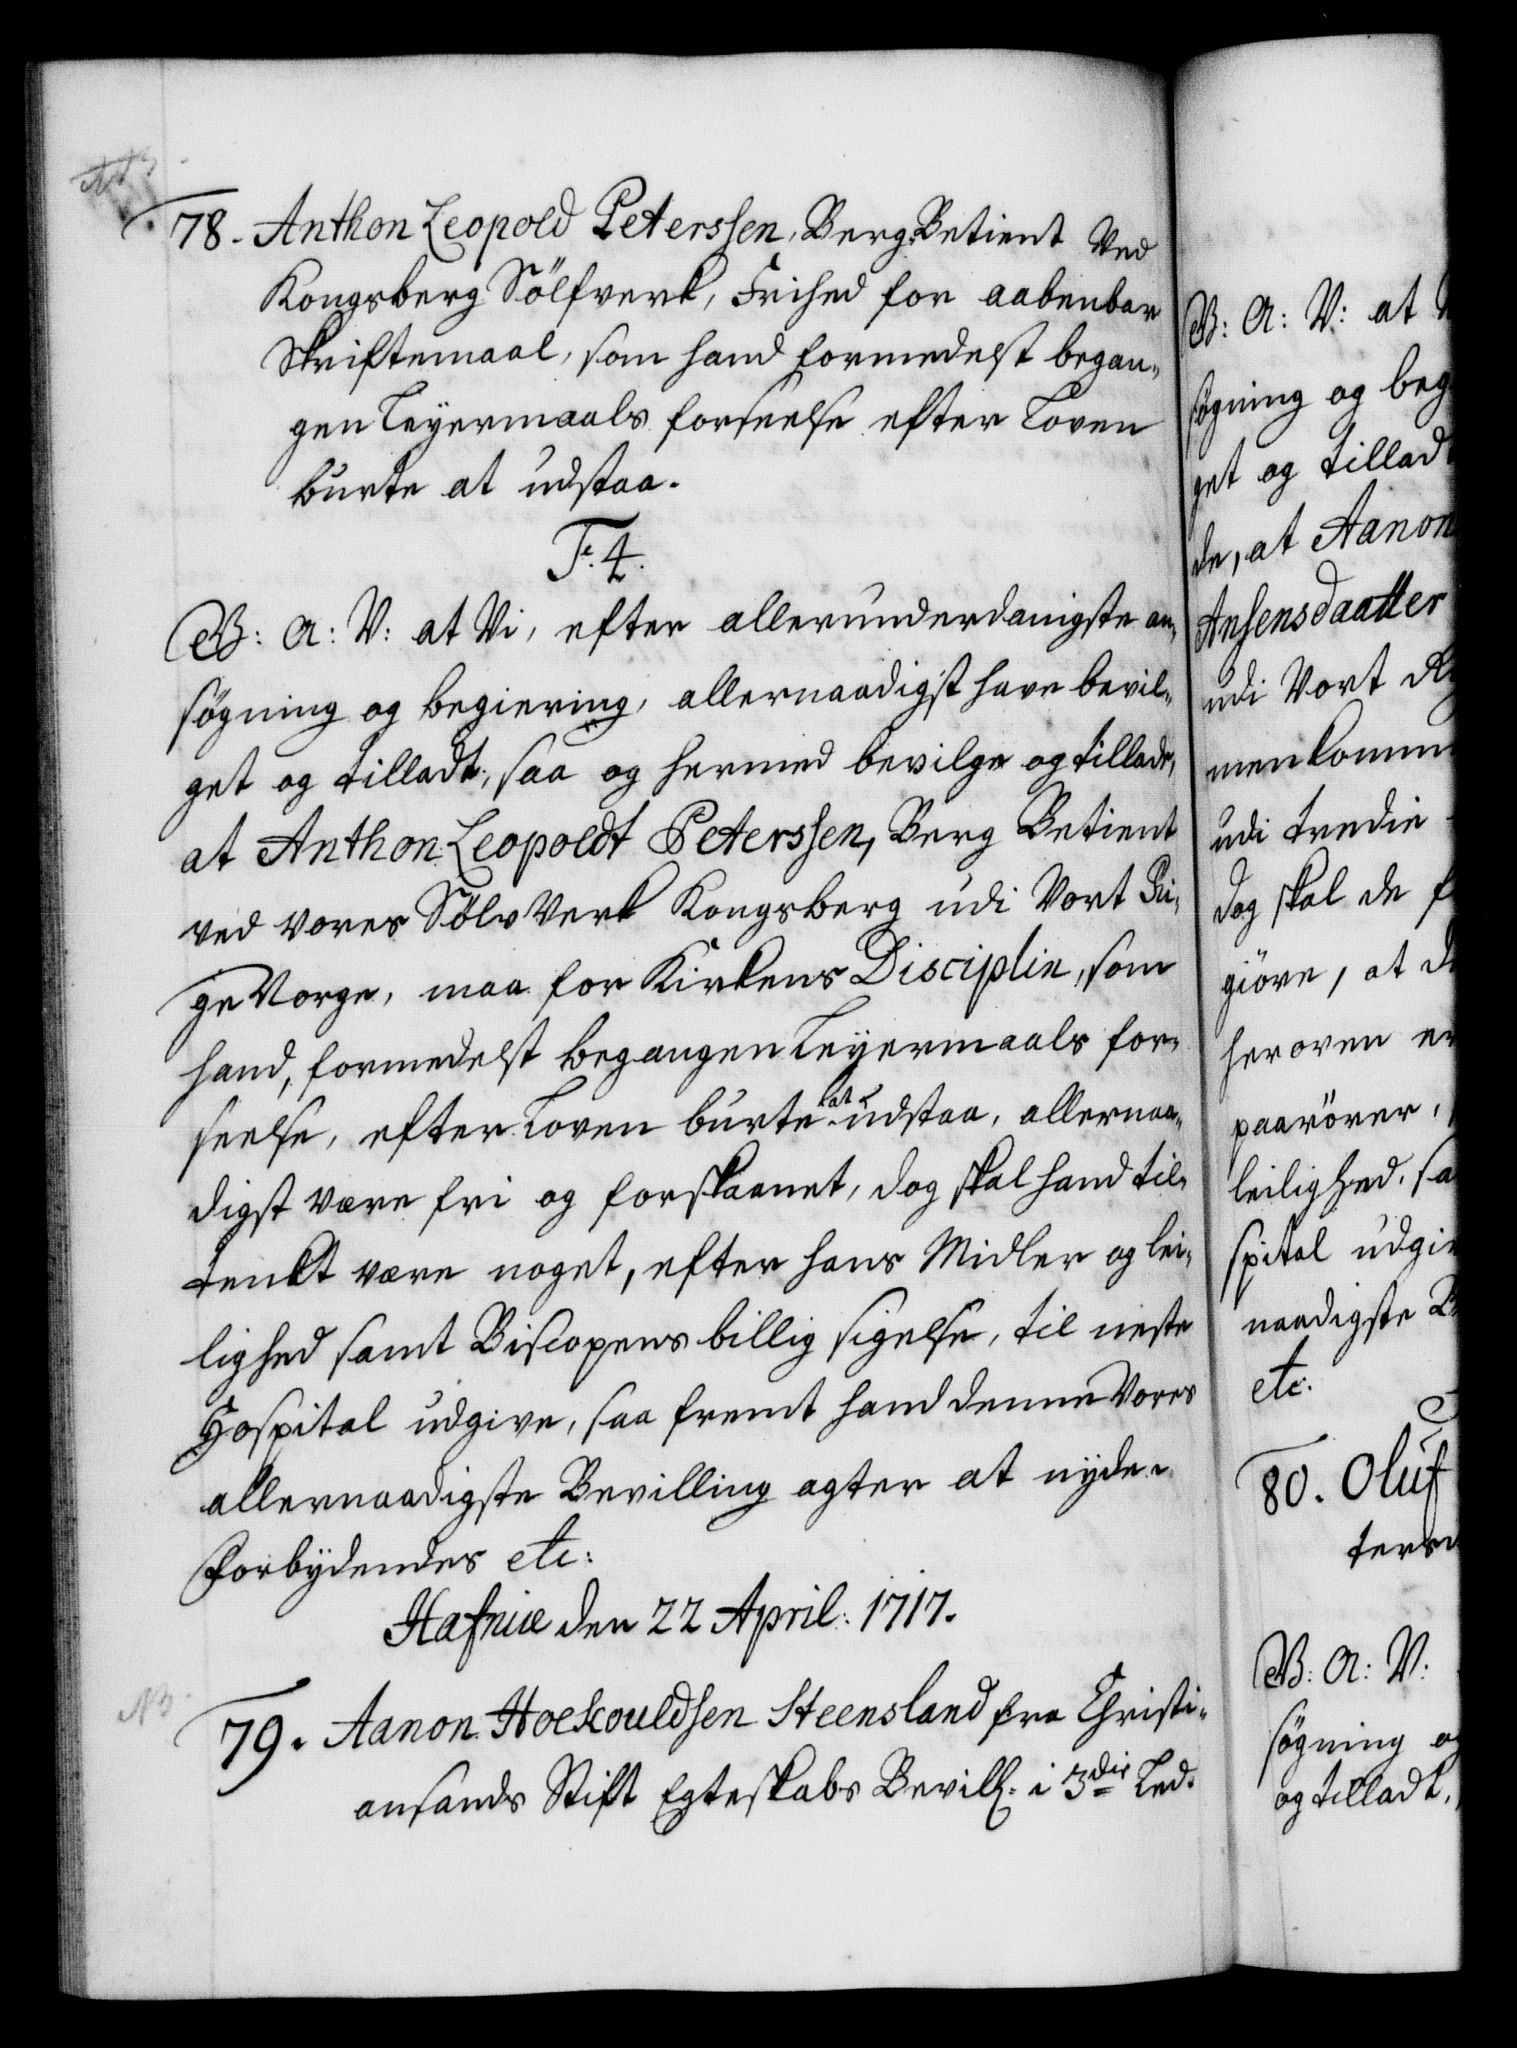 NB.
78. Anthon Leopold Peterssen, Berg Betient Ved
Kongsberg Sölfverk, Frihed for aabenbar
Skriftemaal, som hand formedelst began,,
gen Leyermaals forseelse efter Loven
burte at udstaa.
F. 4.
G: A: V: at Vi, efter allerunderdanigste an,,
søgning og begiering, allernaadigst have bevil,,
get og tilladt, saa og hermed bevilge og tillade,
at Anthon Leopoldt Peterssen, Berg Betient
ved vores Sölv Verk Kongsberg udi Vort Ri,,
ge Norge, maa for Kirkens Disciplin, som
hand, formedelst begangen Leyermaals for,,
seelse, efter Loven burte at udstaa, allernaa,,
digst være fri og forskaanet, dog skal hand til,,
tenkt være noget, efter hans Midler og lei,,
lighed samt Biscopens billig sigelse, til neste
Hospital udgive, saa fremt hand denne Vores
allernaadigste Bevilling agter at nyde.
Forbydendes etc:
Hafniæ den 22 April: 1717.
NB.
79. Aanon Hoekouldsen Steensland fra Christi,,
ansands Stift Egteskabs Bevill: i 3die Led.
G: A: V: at
søgning og beg
get og tillad
de, at Aanon
Ansensdaatter
udi Vort
menkomm
udi tredie
dog skal de
giöre, at
heroven
paarörer,
leilighed, sa
spital udgi
naadigste
etc.
80. Oluf
ters
G: A: V:
søgning og
og tilladt,